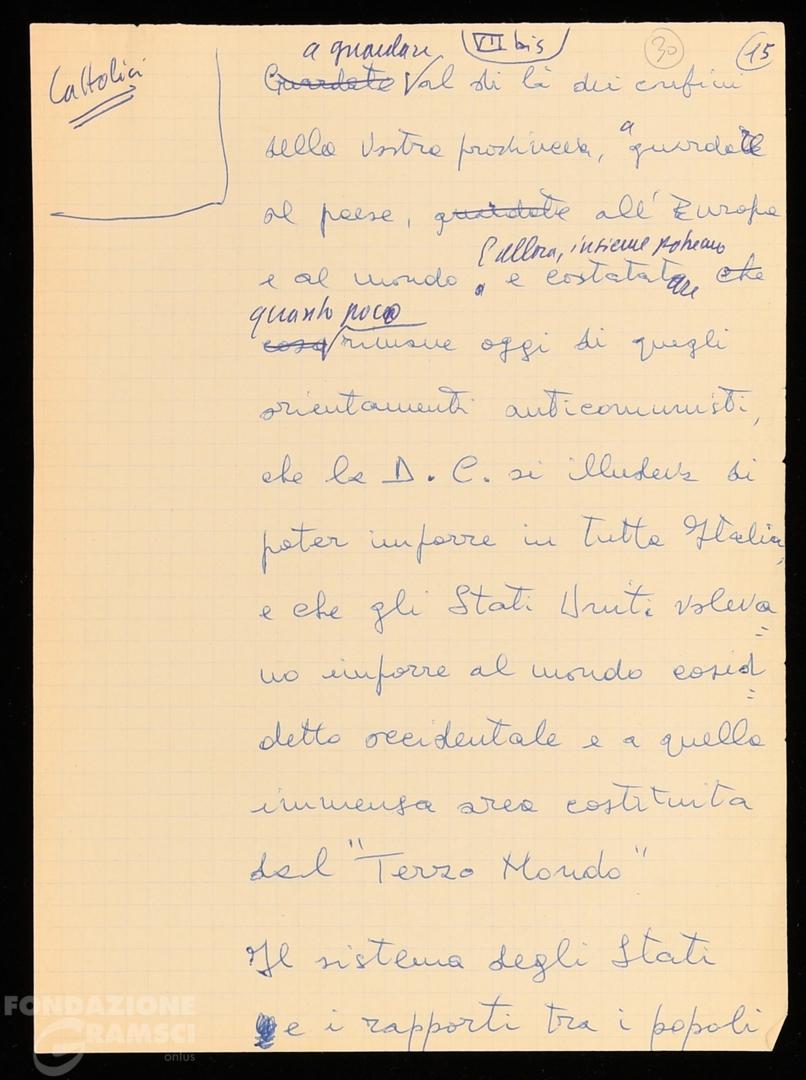 Cattolici
VII bis
30
15
a guardare
Guardate al di là dei confini
della vostra provincia, a guardate
al paese, guardate all'Europa
E allora, insieme potremo
e al mondo, e costatatare che
quanto poco
cosa rimane oggi di quegli
orientamenti anticomunisti,
che la D. C. si illudeva di
poter imporre in tutta Italia,
e che gli Stati Uniti voleva=
no imporre al mondo cosid=
detto occidentale e a quella
immensa area costituita
dal "Terzo Mondo"
Il sistema degli Stati
e i rapporti tra i popoli
FONDAZIONE
GRAMSCI
onlus